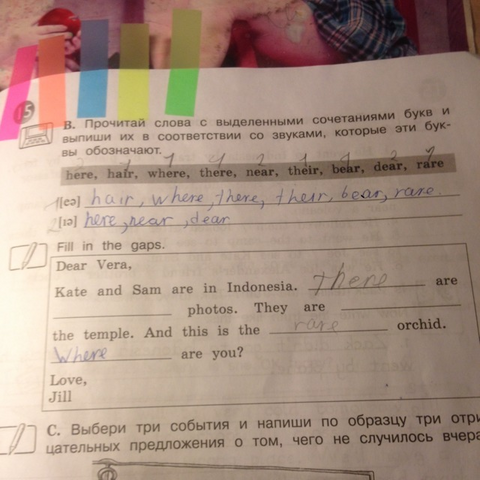 15
В. Прочитай слова с выделенными сочетаниями букв и
выпиши их в соответствии со звуками, которые эти бук-
вы обозначают.
here, hair, where, there, near, their, bear, dear, rare
1[eə] hair, where, there, their, bear, rare
2[ɪə] here, near, dear
Fill in the gaps.
Dear Vera,
Kate and Sam are in Indonesia. There are
photos. They are
the temple. And this is the rare orchid.
Where are you?
Love,
Jill
С. Выбери три события и напиши по образцу три отри-
цательных предложения о том, чего не случилось вчера